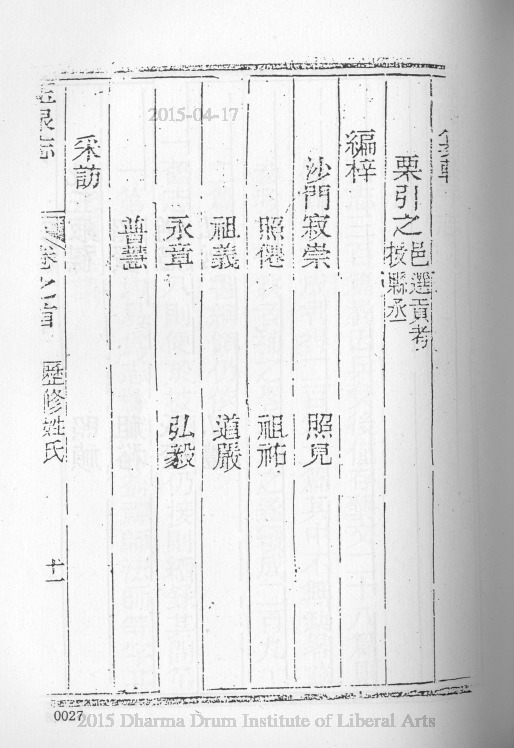 彙輯
栗引之 邑選貢考
授縣丞
編梓
沙門寂崇 照見
照僊 祖祐
祖義 道嚴
永章 弘毅
普慧
采訪
卷之首 歷修姓氏 十一
2015-04-17
0027
2015 Dharma Drum Institute of Liberal Arts